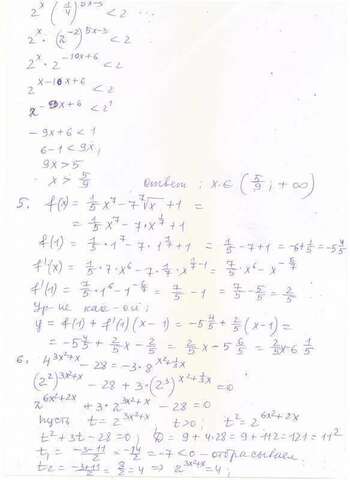 2^x (1/4)^{5x-3} < 2 ...
2^x · (2^{-2})^{5x-3} < 2
2^x · 2^{-10x+6} < 2
2^{x-10x+6} < 2
2^{-9x+6} < 2^1
-9x+6 < 1
6-1 < 9x;
9x > 5
x > 5/9 ответ: x ∈ (5/9; +∞)
5. f(x) = 1/5 x^7 - 7 ⁷√x + 1 =
= 1/5 x^7 - 7·x^{1/7} + 1
f(1) = 1/5 · 1^7 - 7·1^{1/7} + 1 = 1/5 - 7 + 1 = -6 + 1/5 = -5 4/5
f'(x) = 1/5 · 7 · x^6 - 7 · 1/7 · x^{1/7 - 1} = 7/5 x^6 - x^{-6/7}
f'(1) = 7/5 · 1^6 - 1^{-6/7} = 7/5 - 1 = 7/5 - 5/5 = 2/5
Ур-ие кас-ой:
y = f(1) + f'(1)(x-1) = -5 4/5 + 2/5 (x-1) =
= -5 4/5 + 2/5 x - 2/5 = 2/5 x - 5 6/5 = 2/5 x - 6 1/5
6. 4^{3x²+x} - 28 = -3·8^{x²+1/3x}
(2²)^{3x²+x} - 28 + 3·(2³)^{x²+1/3x} = 0
2^{6x²+2x} + 3·2^{3x²+x} - 28 = 0
пусть t = 2^{3x²+x}, t>0; t² = 2^{6x²+2x}
t² + 3t - 28 = 0; D = 9 + 4·28 = 9 + 112 = 121 = 11²
t₁ = (-3-11)/2 = -14/2 = -7 < 0 - отбрасываем
t₂ = (-3+11)/2 = 8/2 = 4 ⇒ 2^{3x²+x} = 4;